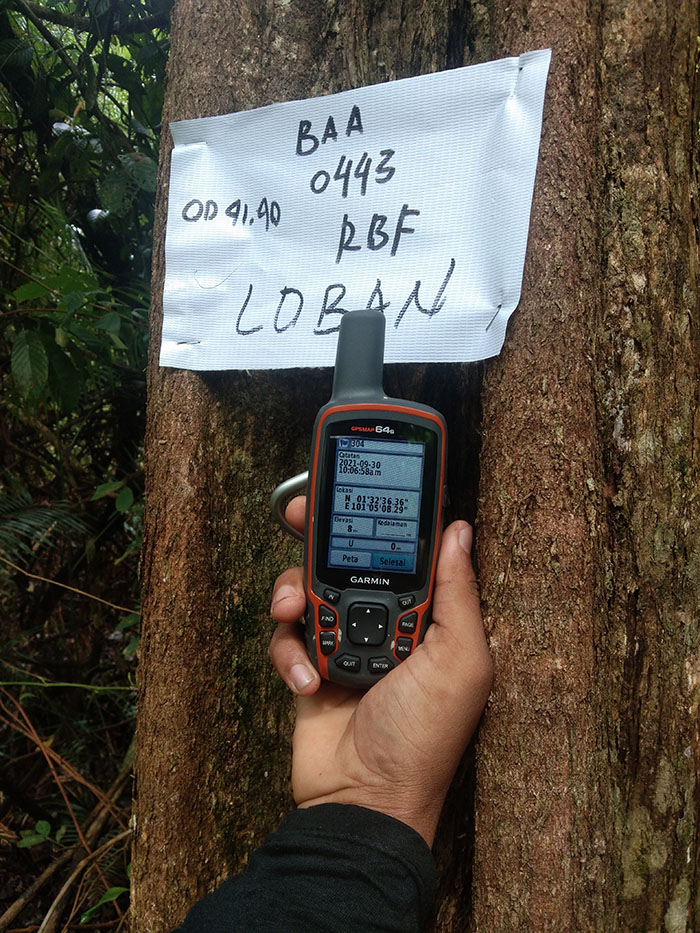 BAA
0443
OD 41.40
RBF
LOBAN
GPSMAP 64s
304
Catatan
2021-09-30
10:06:58am
Lokasi
N 01°32'36.36"
E 101°05'08.29"
Elevasi Kedalaman
8m
U 0m
Peta Selesai
GARMIN
IN OUT
FIND PAGE
MARK MENU
QUIT ENTER